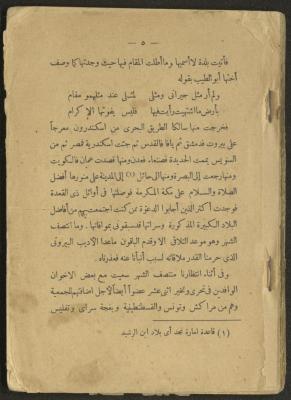 — ٥ —
فأتيت بلدة لا أسميها وما أطلت المقام فيها حيث وجدتها كما وصف
أختها أبو الطيب بقوله
ولم أر مثل جيراني ومثلي لمثلي عند مثلهمو مقام
بأرض ما اشتهيت رأيت فيها فليس يفوتها إلا كرام
فخرجت منها سالكا الطريق البحري من اسكندرون معرجاً
على بيروت فدمشق ثم يافا فالقدس ثم جئت اسكندرية فمصر ثم من
السويس يممت الحديدة فصنعاء فعدن ومنها قصدت عمان فالكويت
ومنها رجعت إلى البصرة ومنها إلى حائل (١) إلى المدينة على منورها أفضل
الصلاة والسلام على مكة المكرمة فوصلتها في أوائل ذي القعدة
فوجدت أكثر الذين أجابوا الدعوة ممن كنت اجتمعت بهم من أفاضل
البلاد الكبيرة المذكورة وسراتها قد سبقوني بموافاتها. وما انتصف
الشهر وهو موعد التلاقي إلا وقدم الباقون ما عدا الأديب البيروتي
الذي حرمنا القدر ملاقاته لسبب أنبأنا عنه فعذرناه.
وفي أثناء انتظارنا منتصف الشهر سعيت مع بعض الاخوان
الوافدين في تحري وتخير اثني عشر عضواً أيضاً لأجل اضافتهم للجمعية
وهم من مراكش وتونس والقسطنطينية وبغجة سراي وتفليس
(١) قاعدة امارة نجد أي بلاد ابن الرشيد